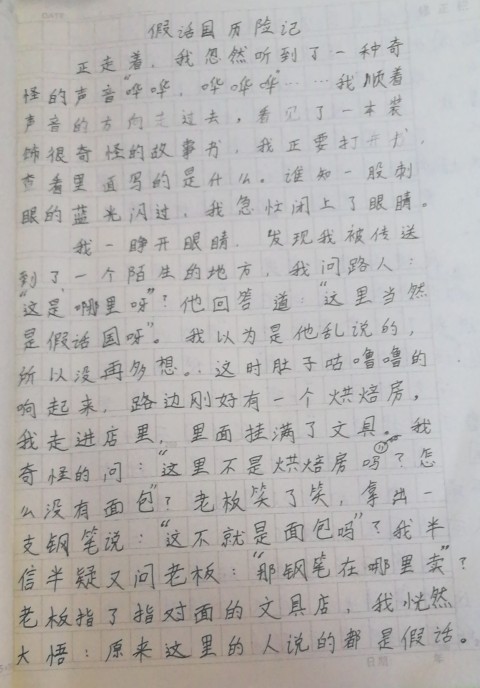 假话国历险记
正走着，我忽然听到了一种奇
怪的声音“哗哗，哗哗哗”……我顺着
声音的方向走过去，看见了一本装
饰很奇怪的故事书，我正要打开书，
查看里面写的是什么。谁知一股刺
眼的蓝光闪过，我急忙闭上了眼睛。
我一睁开眼睛，发现我被传送
到了一个陌生的地方，我问路人：
“这是哪里呀”？他回答道：“这里当然
是假话国呀”。我以为是他乱说的，
所以没再多想。这时肚子咕噜噜的
响起来，路边刚好有一个烘焙房，
我走进店里，里面挂满了文具。我
奇怪的问：“这里不是烘焙房吗？怎
么没有面包”？老板笑了笑，拿出一
支钢笔说：“这不就是面包吗”？我半
信半疑又问老板：“那钢笔在哪里卖”？
老板指了指对面的文具店，我恍然
大悟：原来这里的人说的都是假话。